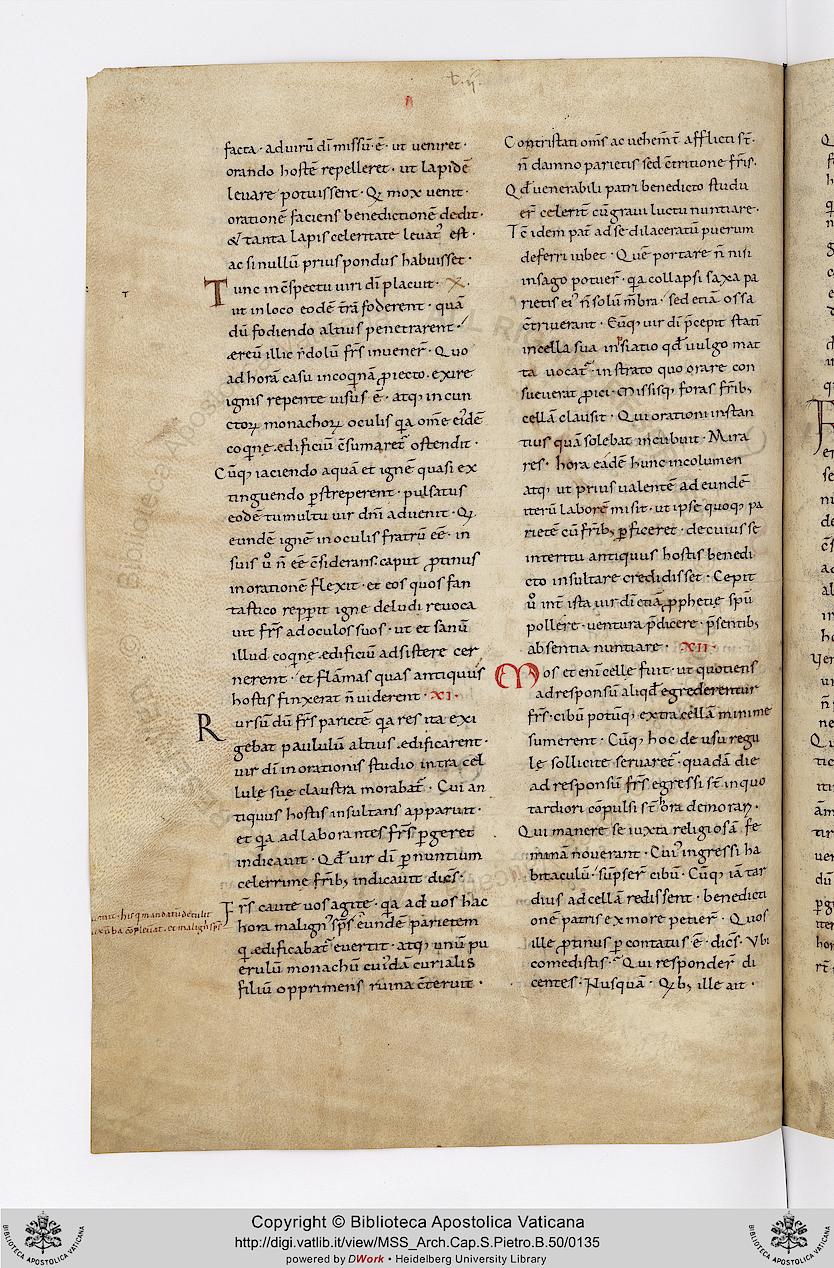 t. ij.
facta · ad uirū dī missū · ē · ut ueniret ·
orando hostē repelleret · ut lapidē
leuare potuissent · Q; mox uenit ·
orationē faciens benedictionē dedit ·
& tanta lapis celeritate leuat᷒ est ·
ac si nullū prius pondus habuisset ·
Tunc in c̄spectu uiri dī placuit · X ·
ut in loco eodē t̄rā foderent · quā
dū fodiendo altius penetrarent ·
ęreū illic ẏdolū fr̄s inuener̄ · Quo
ad horā casu in coq̇nā ꝓiecto · exire
ignis repente uisus ē · atq; in cun
ctoꝝ monachoꝝ oculis q̇a om̄e ei᷒dē
coq̇nę ędificiū c̄sumaret᷒ ostendit ·
Cūq; iaciendo aquā et ignē quasi ex
tinguendo ꝑstreperent · pulsatus
eodē tumultu uir dn̄i aduenit · Q;
eundē ignē in oculis fratrū eē · in
suis u̇ n̄ eē c̄siderans · caput ꝓtinus
in orationē flexit · et eos quos fan
tastico repꝑit igne deludi reuoca
uit fr̄s ad oculos suos · ut et sanū
illud coq̇nę ędificiū adsistere cer
nerent · et flāmas quas antiquus
hostis finxerat n̄ uiderent · XI ·
Rursū dū fr̄s parietē q̇a res ita exi
gebat paululū altius ędificarent ·
uir dī in orationis studio intra cel
lulę suę claustra morabat᷒ · Cui an
tiquus hostis insultans apparuit ·
et q̇a ad laborantes fr̄s ꝑgeret
indicauit · Qd̄ uir dī ꝑ nuntium
celerrime fr̄ib; indicauit dicēs ·
Fr̄s caute uos agite · q̇a ad uos hac
hora malign᷒ sp̄s eundē parietem
q̇ ędificabat᷒ euertit · atq; unū pu
erulū monachū cui᷒dā curialis
filiū opprimens ruina c̄teruit ·
his q mandatū detulit
et malign᷒ sp̄s
Contristati om̄s ac uehem̄t afflicti st̄ ·
n̄ damno parietis sed c̄tritione fr̄is ·
Qd̄ uenerabili patri benedicto studu
er̄ celerit̄ cū graui luctu nuntiare ·
Tc̄ idem pat̄ ad se dilaceratū puerum
deferri iubet · Quē portare n̄ nisi
in sago potuer̄ · q̇a collapsi saxa pa
rietis ei᷒ n̄ solū m̄bra · sed etiā ossa
c̄triuerant · Eūq; uir dī p̄cepit statī
in cella sua in psiatio qd̄ uulgo mat
ta uocat᷒ · in strato quo orare con
sueuerat ꝓici · Missisq; foras fr̄ib;
cellā clausit · Qui orationi instan
tius quā solebat incubuit · Mira
res · hora eadē hunc incolumen
atq; ut prius ualentē ad eundē
iterū laborē misit · ut ipse quoq; pa
rietē cū fr̄ib; ꝑficeret · de cuius se
interitu antiquus hostis benedi
cto insultare credidisset · Cepit
u̇ int̄ ista uir dī etiā ꝓphetię spū
pollere · uentura p̄dicere · p̄sentib;
absentia nuntiare · XII ·
Mos et enī celle fuit · ut quotiens
ad responsū aliqd̄ egrederentur
fr̄s · cibū potūq; extra cellā minime
sumerent · Cūq; hoc de usu regu
lę sollicite seruaret᷒ · quadā die
ad responsū fr̄s egressi st̄ in quo
tardiori cōpulsi st̄ hora demoraꝝ ·
Qui manere se iuxta religiosā fe
minā nouerant · Cui᷒ ingressi ha
bitaculū · sūpser̄ cibū · Cūq; iā tar
dius ad cellā redissent · benedicti
onē patris ex more petier̄ · Quos
ille ꝓtinus ꝑcontatus ē · dicēs · Vbi
comedistis · Qui responder̄ di
centes · Nusquā · Q;b; ille ait ·
Copyright © Biblioteca Apostolica Vaticana
http://digi.vatlib.it/view/MSS_Arch.Cap.S.Pietro.B.50/0135
powered by DWork • Heidelberg University Library